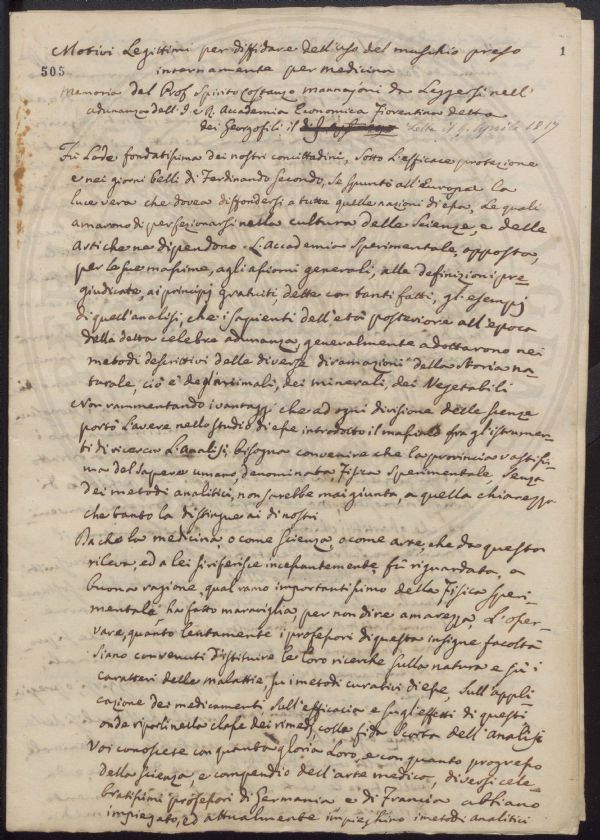 1
505
Motivi Legittimi per diffidare dell'uso del muschio preso
internamente per medicina
Memoria del Prof. Spirito Costanzo Mannajoni da Leggersi nell'
adunanza dell' I. e R. Accademia Economica Fiorentina detta
dei Georgofili il Letta il Aprile 1817
Fù Lode fondatissima dei nostri concittadini, sotto L'efficace protezione
e nei giorni belli di Ferdinando Secondo, se spuntò all'Europa la
luce vera che dovea diffondersi a tutte quelle nazioni di essa, Le quali
amarono di perfezionarsi nella cultura delle Scienze, e delle
arti che ne dipendono. L'Accademia Sperimentale, opposta,
per le sue massime, agli assiomi generali, alle definizioni pre-
giudicate, ai principj gratuiti, dette con tanti fatti, gli esempj
di quell'analisi, che i sapienti dell'età posteriore all'epoca
della detta celebre adunanza, generalmente adottarono nei
metodi descrittivi delle diverse diramazioni della Storia na-
turale, ciò è degl'animali, dei minerali, dei Vegetabili
Non rammentando i vantaggi che ad ogni divisione delle scienze
portò L'avere nello studio di esse introdotto fra gl'istrumen-
ti di ricerca L'Analisi, bisogna convenire che la provincia vastissi-
ma del Sapere umano, denominata, Fisica Sperimentale senza
dei metodi analitici, non sarebbe mai giunta, a quella chiarezza
che tanto la distingue ai dì nostri
che la medicina, o come scienza, o come arte, che da questa
rileva, ed a lei si riferisce incessantemente fù riguardata, a
buona ragione, qual ramo importantissimo della Fisica speri-
mentale ha fatto maraviglia, per non dire amarezza, L'osser-
vare, quanto lentamente i professori di questa insigne facoltà
siano convenuti d'istituire le loro ricerche sulla natura e sù i
caratteri delle malattie, su i metodi curativi di esse sull'appli-
cazione dei medicamenti sull'efficacia e sugl'effetti di questi
onde riporli nella classe dei rimedj, colla fida scorta dell'analisi
Voi conoscete con quanta gloria Loro, e con quanto progresso
della scienza, e compendio dell'arte medica, diversi cele-
bratissimi professori di Germania e di Francia abbiano
impiegato, ed attualmente impieghino i metodi analitici